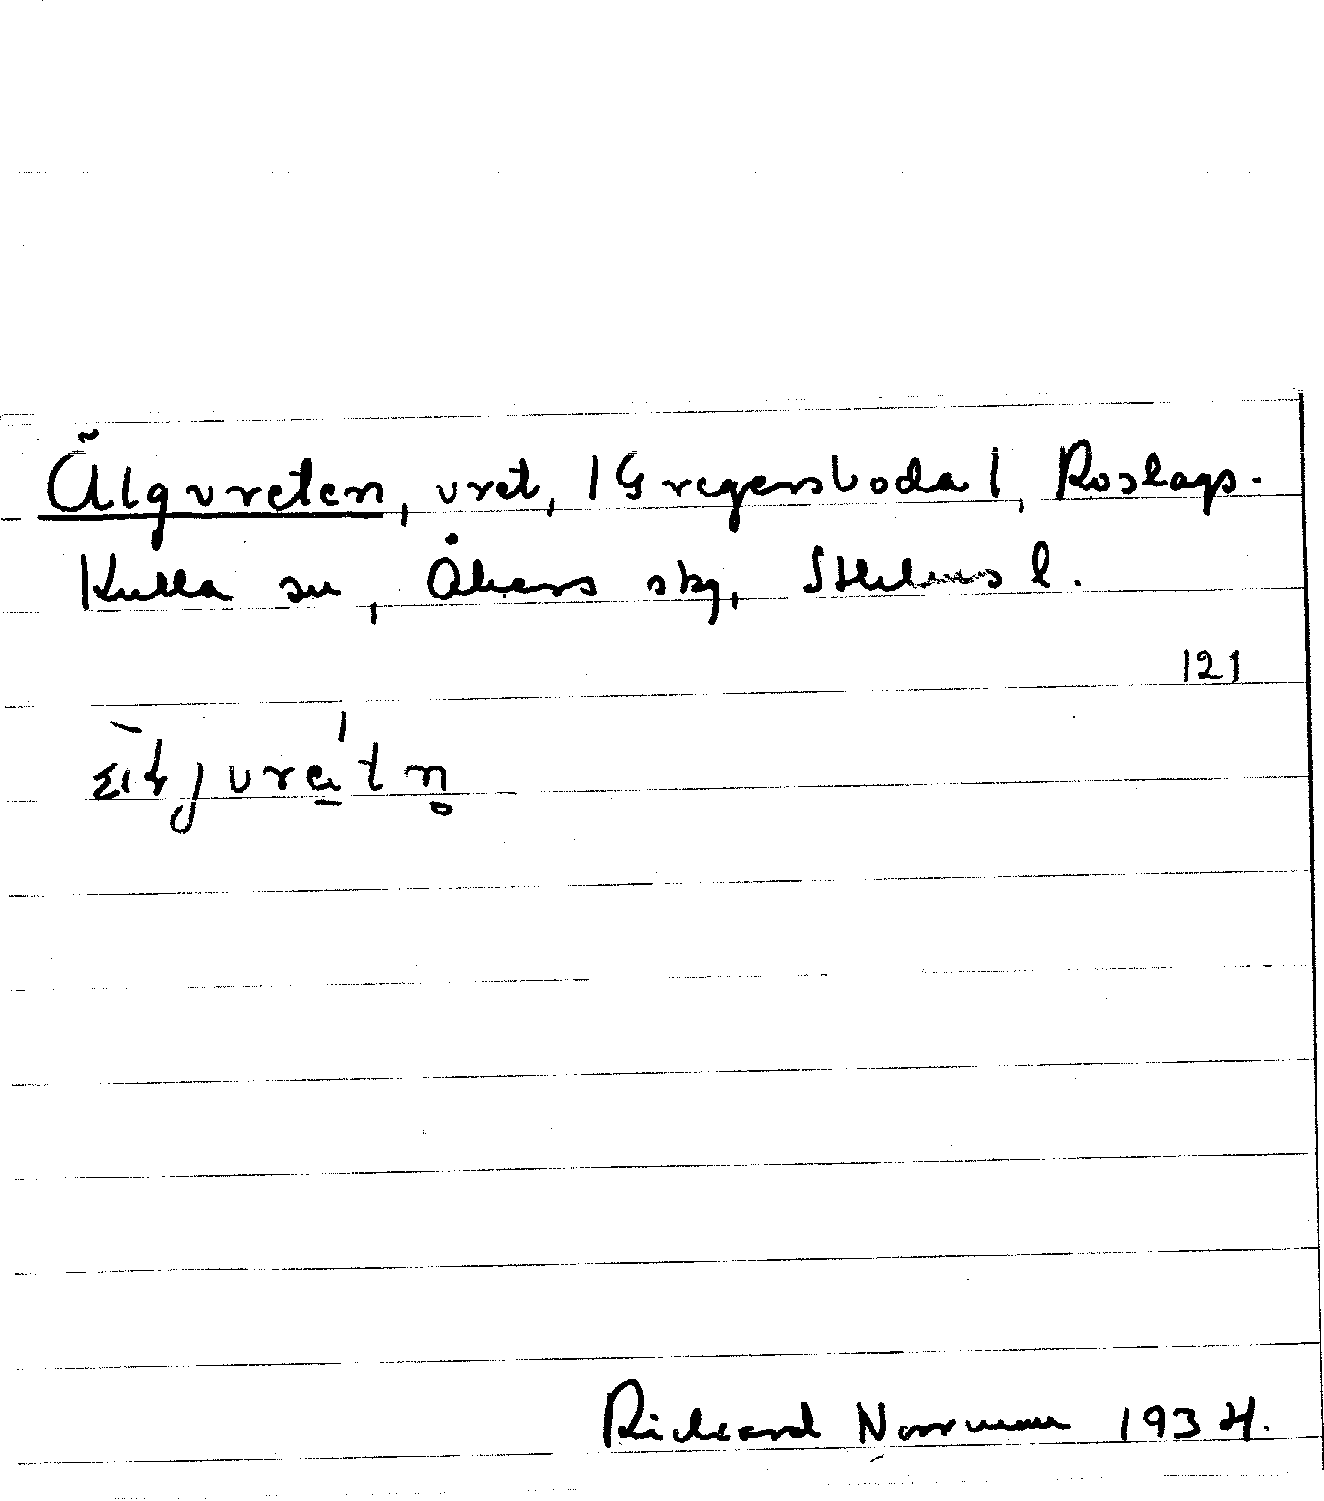 Älgvreten, vret, |Gregersboda|, Roslags-
Kulla sn, Åkers skg, Sthlms l.
121
Richard Norrman 1934.